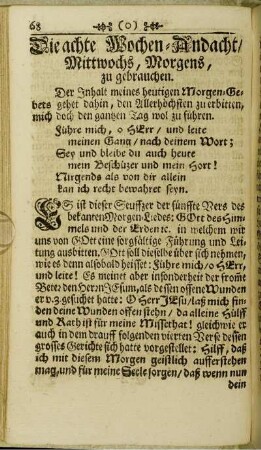 68 (o)
Die achte Wochen-Andacht/
Mittwochs, Morgens,
zu gebrauchen.
Der Inhalt meines heutigen Morgen-Ge-
bets gehet dahin, den Allerhöchsten zu erbitten,
mich doch den gantzen Tag wol zu führen.
Führe mich, o HErr/ und leite
meinen Gang/ nach deinem Wort;
Sey und bleibe du auch heute
mein Beschützer und mein Hort!
Nirgends als von dir allein
kan ich recht bewahret seyn.
ES ist dieser Seuffzer der fünffte Vers des
bekanten Morgen-Liedes; GOtt des Him-
mels und der Erden rc. in welchem wir
uns von GOtt eine sorgfältige Führung und Lei-
tung ausbitten. GOtt soll dieselbe über sich nehmen,
wie es dann alsobald heisset: Führe mich/ o HErr,
und leite! Es meinet aber insonderheit der fromme
Beter den Herrn JEsum, als dessen offene Wunden
er v. 3 gesuchet hatte: O HErr JEsu/ laß mich fin-
den deine Wunden offen stehn/ da alleine Hülff
und Rath ist für meine Missethat! gleichwie er
auch in dem drauff folgenden vierten Verse dessen
grosses Gerichte sich hatte vorgestellet: Hilff, daß
ich mit diesem Morgen geistlich aufferstehen
mag, und für meine Seele sorgen/ daß wenn nun
dein